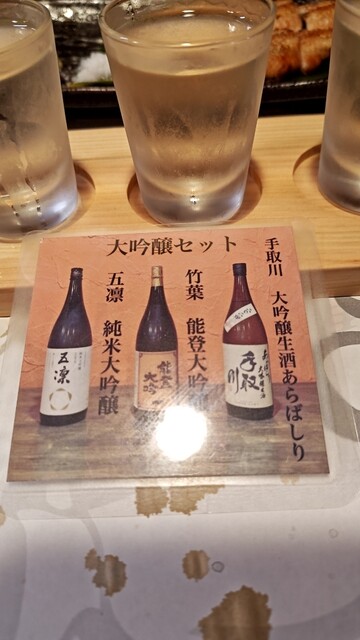 大吟醸セット
手取川 大吟醸生酒あらばしり
竹葉 能登大吟
五凛 純米大吟醸
五凛
能登
大吟
手取川